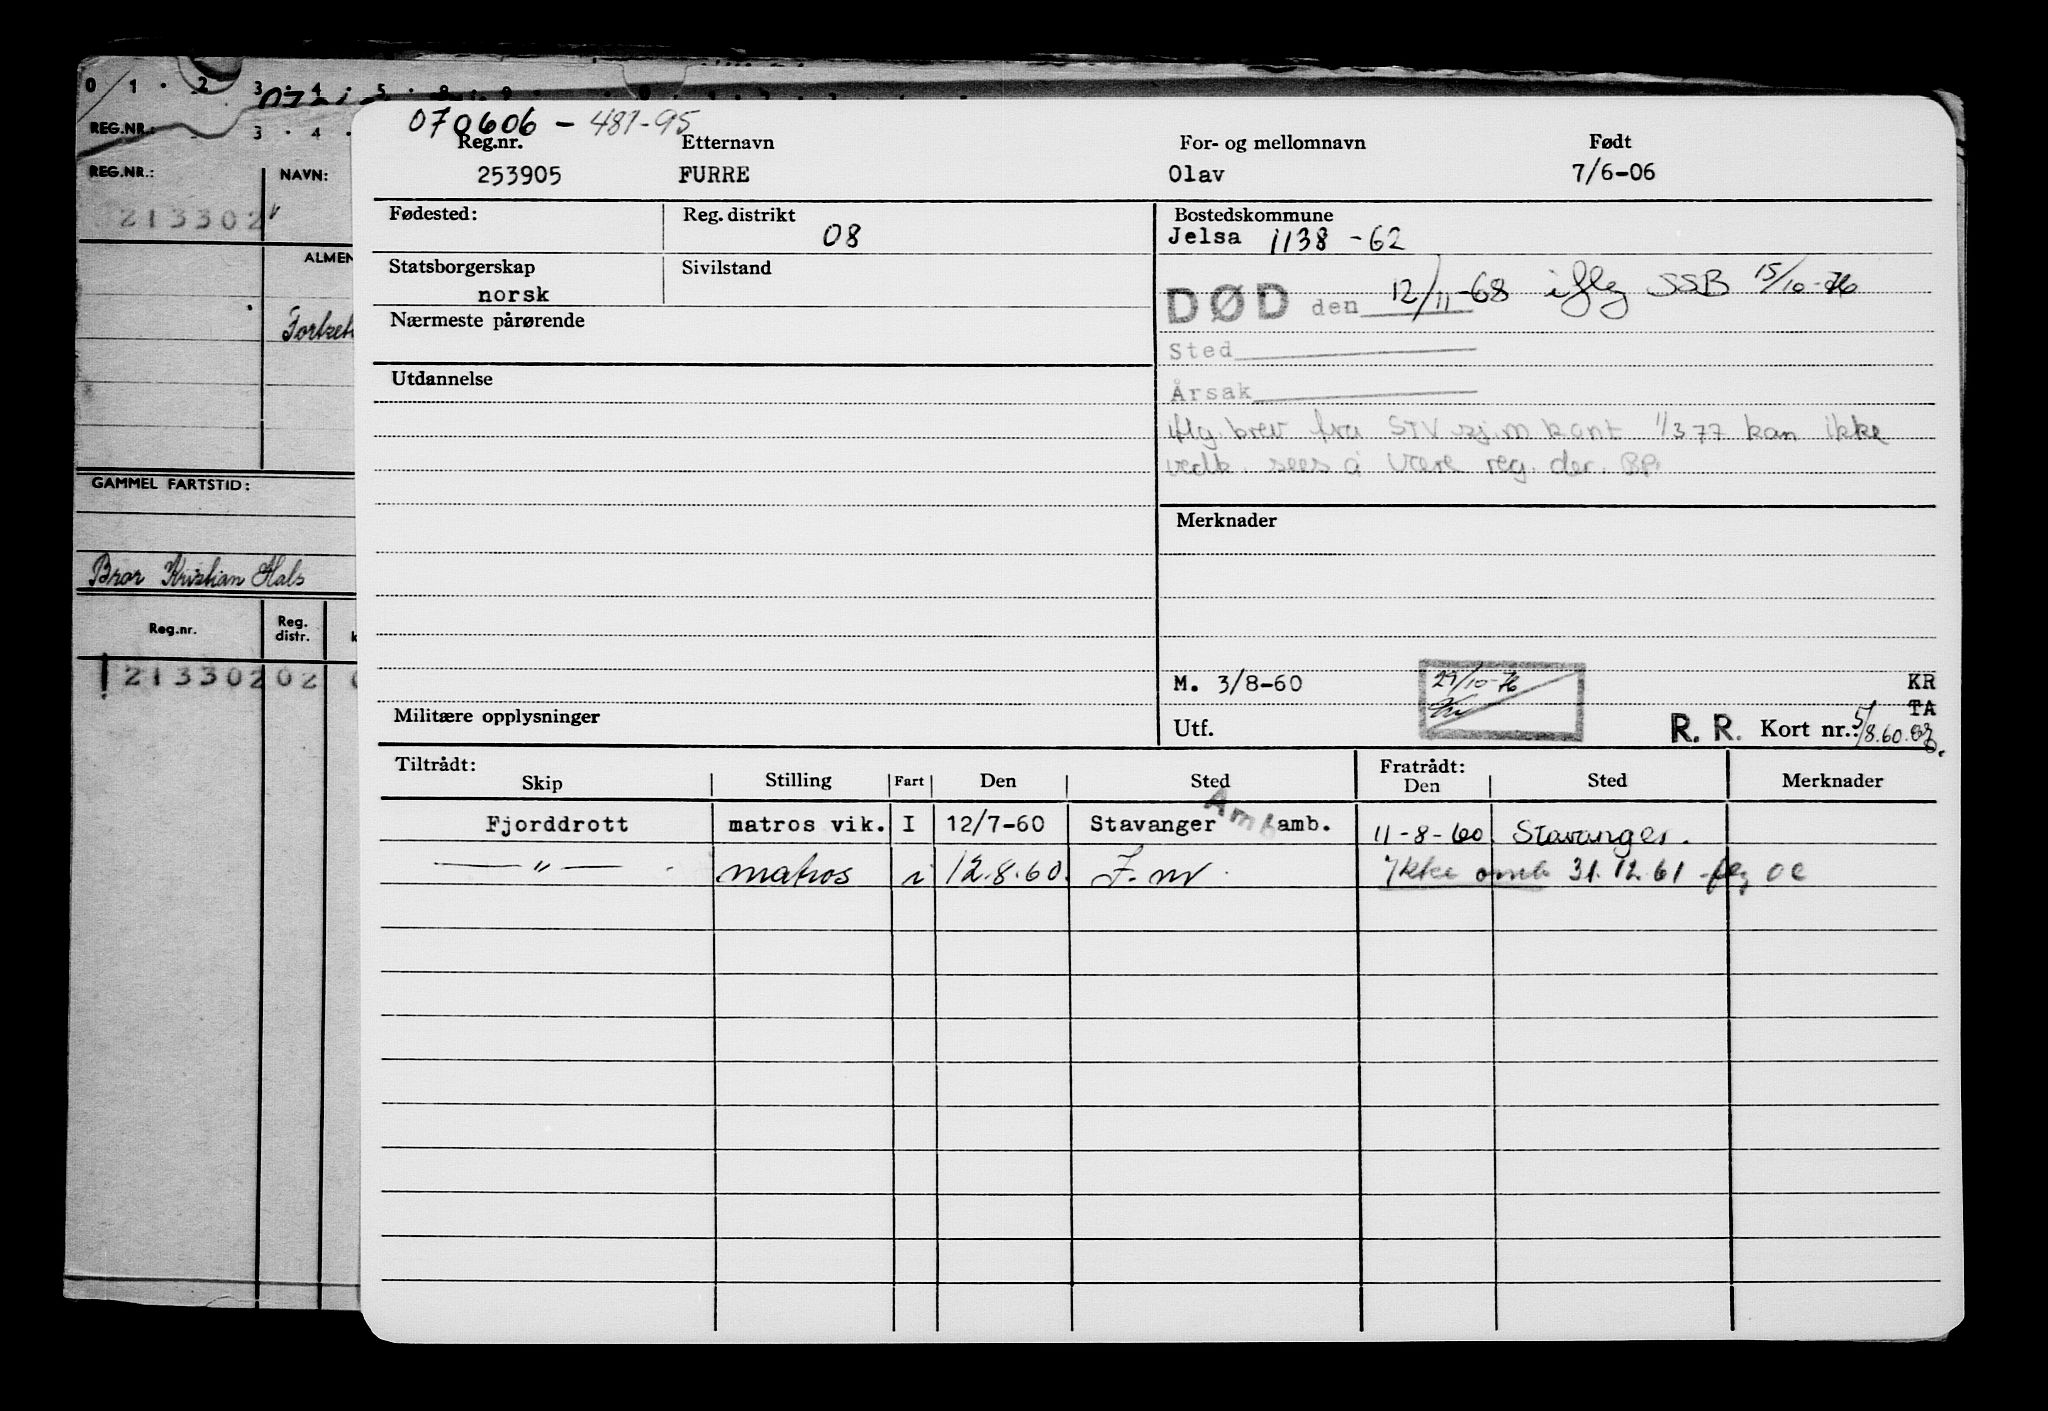 0 1 2 3 4 5 8 9
REG.NR.: 3 4
070606 - 481-95
Reg.nr. Etternavn For- og mellomnavn Født
253905 FURRE Olav 7/6-06
REG.NR.: NAVN:
213302
Fødested: Reg. distrikt Bostedskommune
08 Jelsa 1138 -62
ALMEN
Statsborgerskap Sivilstand
norsk
DØD den 12/11-68 iflg SSB 15/10-76
Nærmeste pårørende
Sted
Utdannelse
Årsak
iflg. brev fra STV sj.m kont 1/3 77 kan ikke
vedk. sees å være reg. der. BP.
GAMMEL FARTSTID:
Merknader
Bror Kristian Hals
Reg.nr. Reg. distr. k
213302 02
M. 3/8-60 29/10-76 KR
TA
Militære opplysninger
Utf. R. R. Kort nr.: 5/8.60.
Tiltrådt: Fratrådt:
Skip Stilling Fart Den Sted Den Sted Merknader
Fjorddrott matros vik. I 12/7-60 Stavanger amb. 11-8-60. Stavanger.
— " — matros i 12.8.60. F. m Ikke omb 31.12.61 flg OC